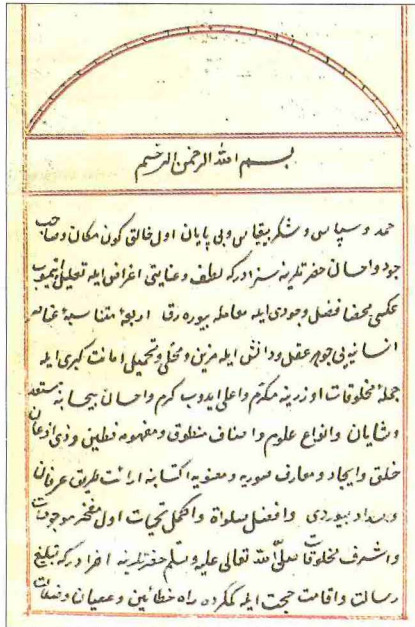 بسم الله الرحمن الرحیم
حمد و سپاس و شکر بیقیاس و بی پایان اول خالق کون مکان و صاحب
جود و احسان حضرتلرینه سزادرکه لطف و عنایتی اغراض ایله تعلیل اتمیوب
محض فضل وجودی ایله معامله بیوره رق اربعهٔ متناسبهٔ عناصر
انسانیه یی جوهر عقل و دانش ایله مزین و محلی و تحمیل امانت کبری ایله
جملهٔ مخلوقات اوزرینه مکرم و اعلی ایدوب کرم و احسان بیحسابنه مستعد
و شایان و انواع علوم و اصناف منطوق و مفهومه فطین و ذی اذعان
خلق و ایجاد و معارف صوریه و معنویه اکتسابنه ارائت طریق عرفان
و سداد بیوردی و افضل صلواة و اکمل تحیات اول مفخر موجودات
و اشرف مخلوقات صلی الله تعالی علیه و سلم حضرتلرینه احرادرکه تبلیغ
رسالت و اقامت حجت ایله کمکرده راه خطائین و عصیان و ضلالت